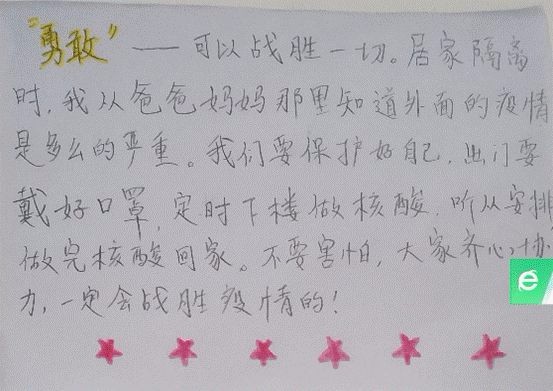 “勇敢”——可以战胜一切。居家隔离
时,我从爸爸妈妈那里知道外面的疫情
是多么的严重。我们要保护好自己,出门要
戴好口罩,定时下楼做核酸,听从安排
做完核酸回家。不要害怕,大家齐心协
力,一定会战胜疫情的!